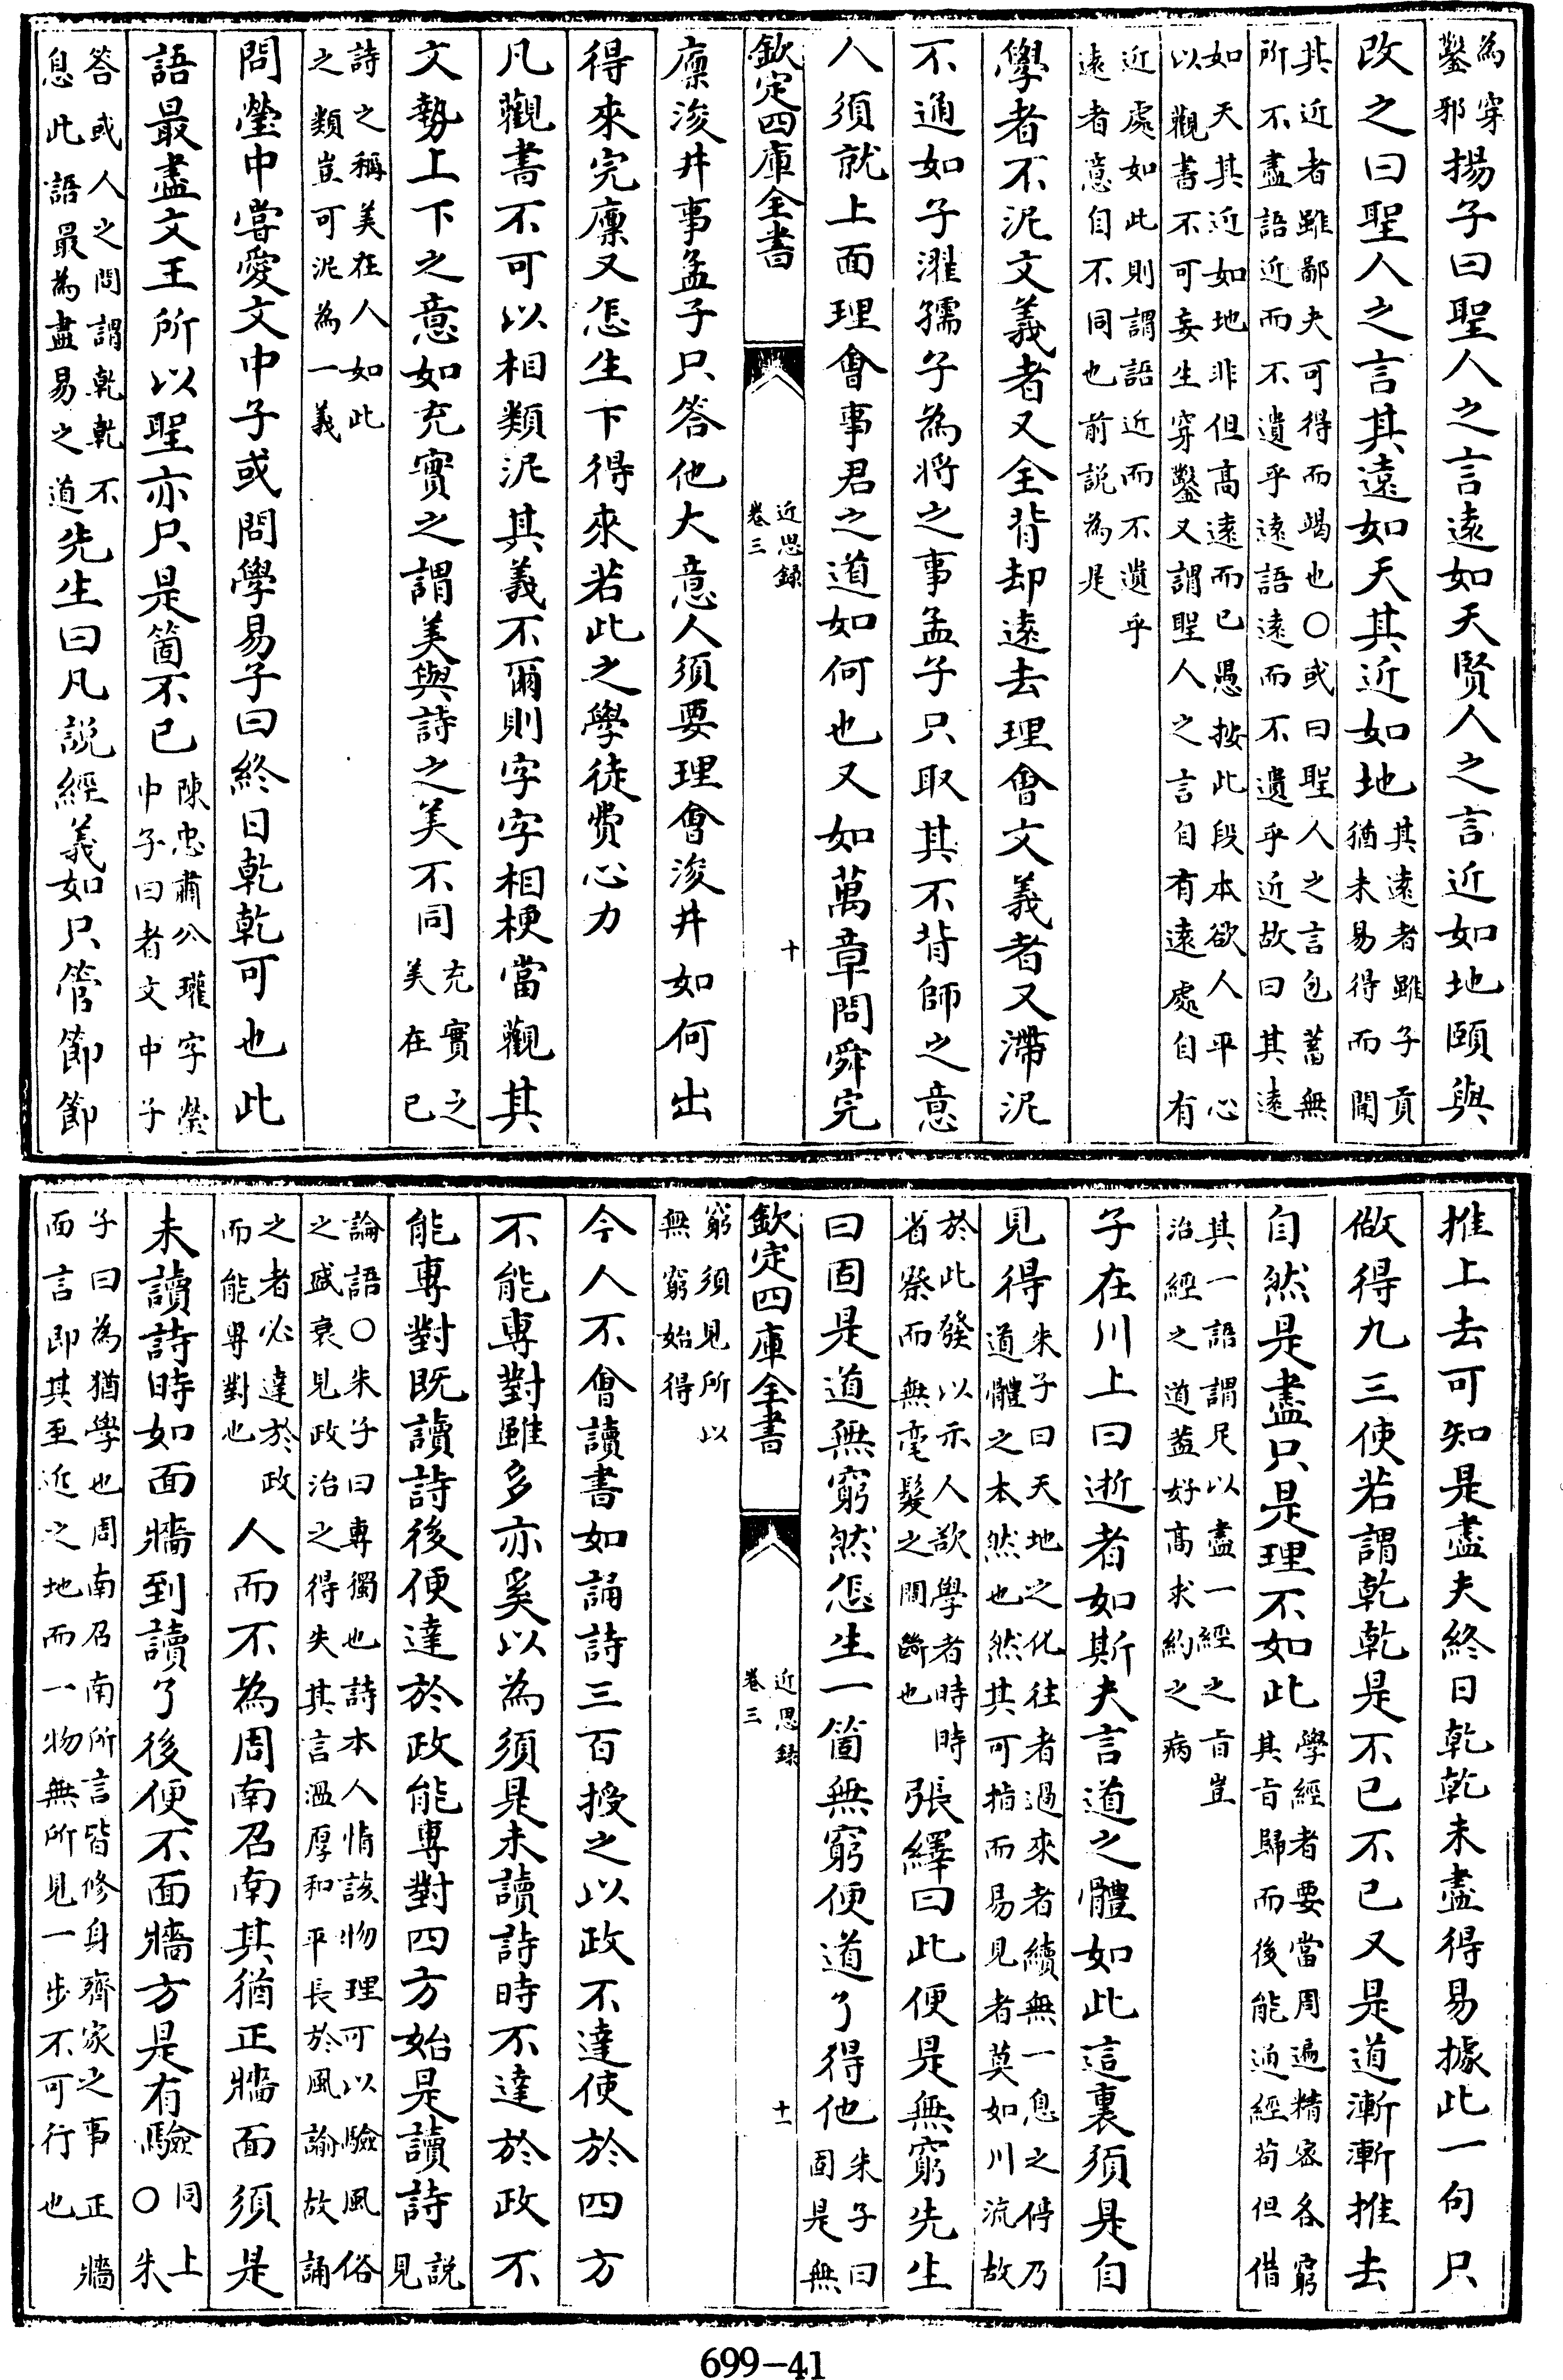 為穿
鑿邪揚子曰聖人之言遠如天賢人之言近如地頤與
改之曰聖人之言其遠如天其近如地其遠者雖子貢
猶未易得而聞
其近者雖鄙夫可得而竭也〇或曰聖人之言包蓄無
所不盡語近而不遺乎遠語遠而不遺乎近故曰其遠
如天其近如地非但高遠而已愚按此段本欲人平心
以觀書不可妄生穿鑿又謂聖人之言自有遠處自有
近處如此則謂語近而不遺乎
遠者意自不同也前説為是
學者不泥文義者又全背却遠去理會文義者又滯泥
不通如子濯孺子為將之事孟子只取其不背師之意
人須就上面理會事君之道如何也又如萬章問舜完
欽定四庫全書
近思錄
卷三
十
廩浚井事孟子只答他大意人須要理會浚井如何出
得來完廩又怎生下得來若此之學徒費心力
凡觀書不可以相類泥其義不爾則字字相梗當觀其
文勢上下之意如充實之謂美與詩之美不同充實之
美在已
詩之稱美在人如此
之類豈可泥為一義
問瑩中嘗愛文中子或問學易子曰終日乾乾可也此
語最盡文王所以聖亦只是箇不已陳忠肅公瓘字瑩
中子曰者文中子
答或人之問謂乾乾不
息此語最為盡易之道先生曰凡説經義如只管節節
推上去可知是盡夫終日乾乾未盡得易據此一句只
做得九三使若謂乾乾是不已不已又是道漸漸推去
自然是盡只是理不如此學經者要當周遍精密各窮
其旨歸而後能通經茍但借
其一語謂足以盡一經之旨豈
治經之道葢好高求約之病
子在川上曰逝者如斯夫言道之體如此這裏須是自
見得朱子曰天地之化往者過來者續無一息之停乃
道體之本然也然其可指而易見者莫如川流故
於此發以示人欲學者時時
省察而無毫髮之間斷也張繹曰此便是無窮先生
曰固是道無窮然怎生一箇無窮便道了得他朱子曰
固是無
欽定四庫全書
近思錄
卷三
十一
窮須見所以
無窮始得
今人不會讀書如誦詩三百授之以政不達使於四方
不能專對雖多亦奚以為須是未讀詩時不達於政不
能專對既讀詩後便達於政能專對四方始是讀詩説
見
論語〇朱子曰專獨也詩本人情該物理可以驗風俗
之盛衰見政治之得失其言溫厚和平長於風諭故誦
之者必達於政
而能專對也人而不為周南召南其猶正牆面須是
未讀詩時如面牆到讀了後便不面牆方是有驗同上
〇朱
子曰為猶學也周南召南所言皆修身齊家之事正牆
面言即其至近之地而一物無所見一步不可行也
699-41